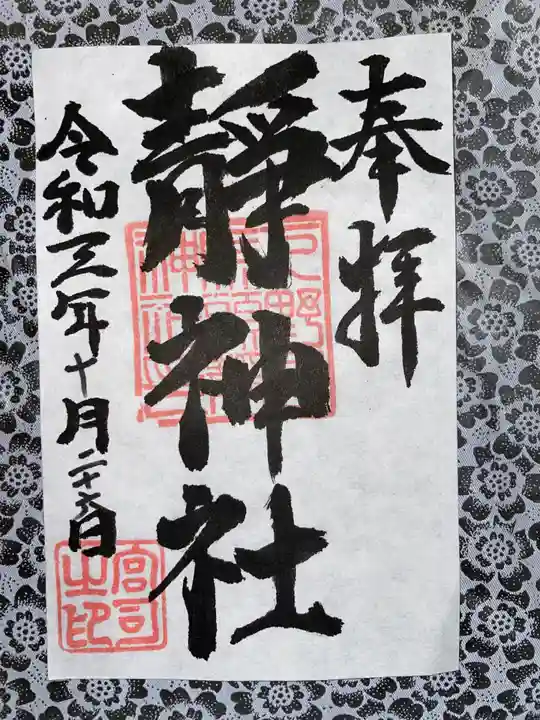 奉拝
靜神社
令和三年十月二十六日
宮司
之印